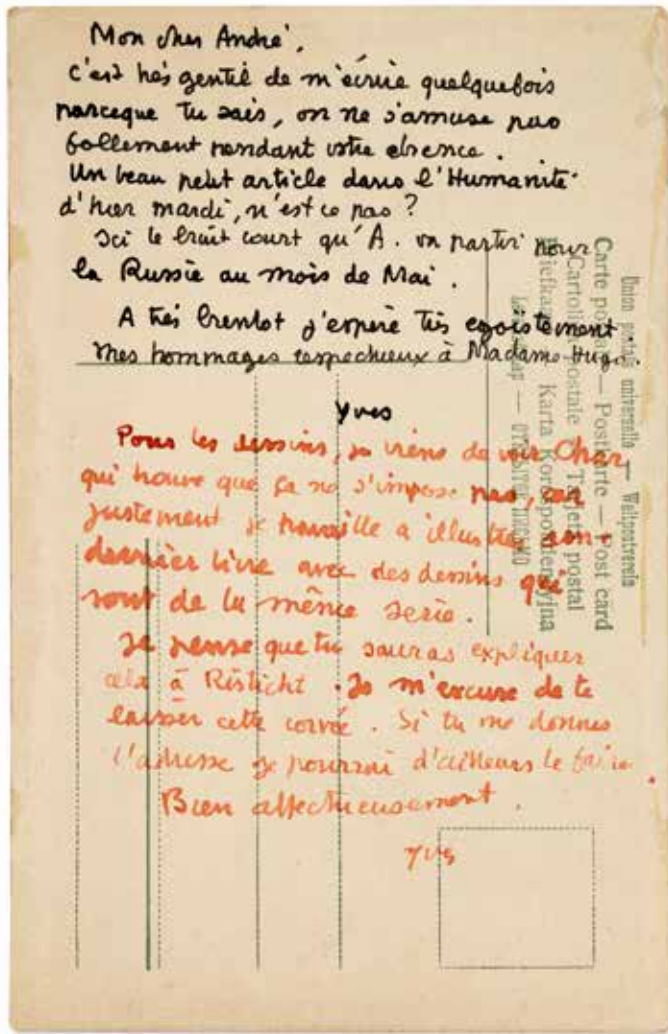 Mon cher André,
c'est très gentil de m'écrire quelquefois
parceque tu sais, on ne s'amuse pas
follement pendant votre absence.
Un beau petit article dans l'Humanité
d'hier mardi, n'est ce pas ?
Ici le bruit court qu'A. va partir pour
la Russie au mois de Mai.
A très bientot j'espère très egoistement
Mes hommages respectueux à Madame Hugo.
Yves
Pour les dessins, je viens de voir Char,
qui trouve que ça ne s'impose pas, car
justement je travaille a illustrer son
dernier livre avec des dessins qui
sont de la même serie.
Je pense que tu sauras expliquer
cela à Risticht. Je m'excuse de te
laisser cette corvée. Si tu me donnes
l'adresse je pourrai d'ailleurs le faire.
Bien affectueusement.
Yves
Union postale universelle — Weltpostverein
Carte postale — Postkarte — Post card
Cartolina postale — Tarjeta postal
Briefkaart — Karta Korespondencyjna